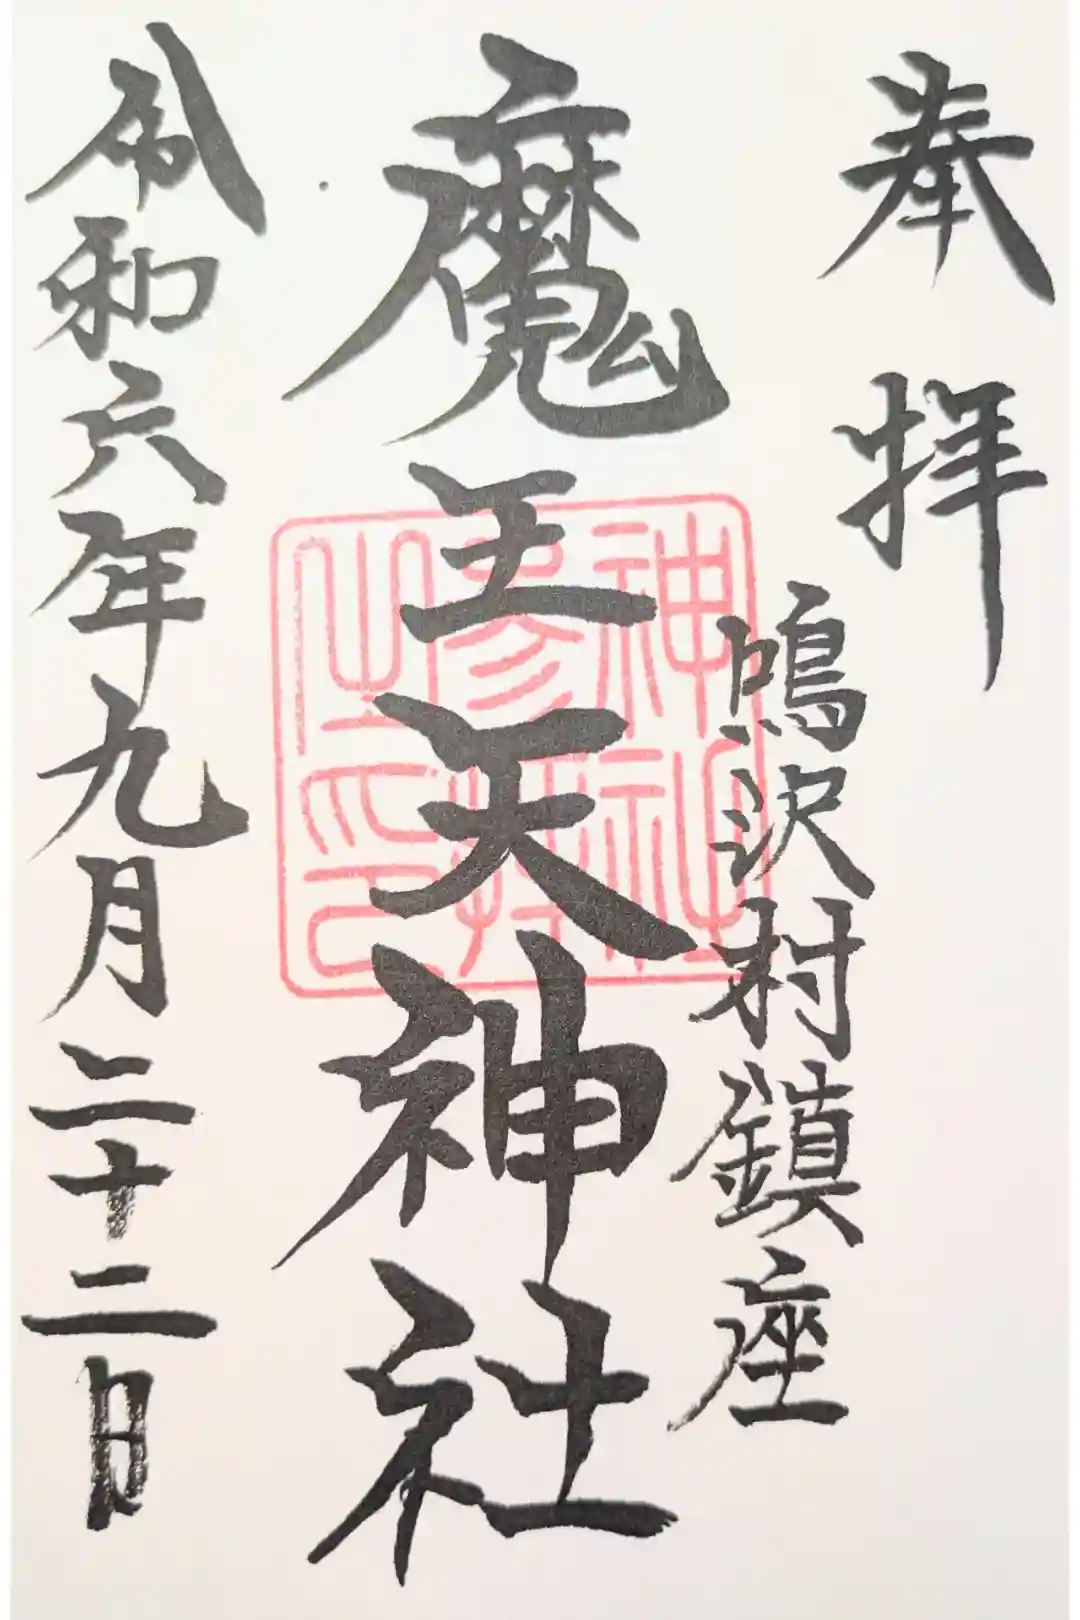 奉拝
鳴沢村鎮座
魔王天神社
神社参拝之印
令和六年九月二十二日